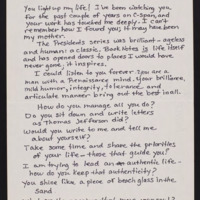 You light up my life! I've been watching you
for the past couple of years on C-Span, and
your work has touched me deeply. I can't
remember how I found you; it may have been
my mother.
The Presidents series was brilliant - ageless
and human: a classic. Book Notes is life itself
and has opened doors to places I would have
never gone; it inspires.
I could listen to you forever. You are a
man with a Renaissance mind, your brilliant,
mild humor, integrity, tolerance and
articulate manner bring out the best in all.
How do you manage all you do?
Do you sit down and write letters
as Thomas Jefferson did?
Would you write to me and tell me
about yourself?
Take some time and share the priorities
of your life - those that guide you?
I am trying to lead an authentic life -
how do you keep that authenticity?
You shine like a piece of beach glass in the
sand